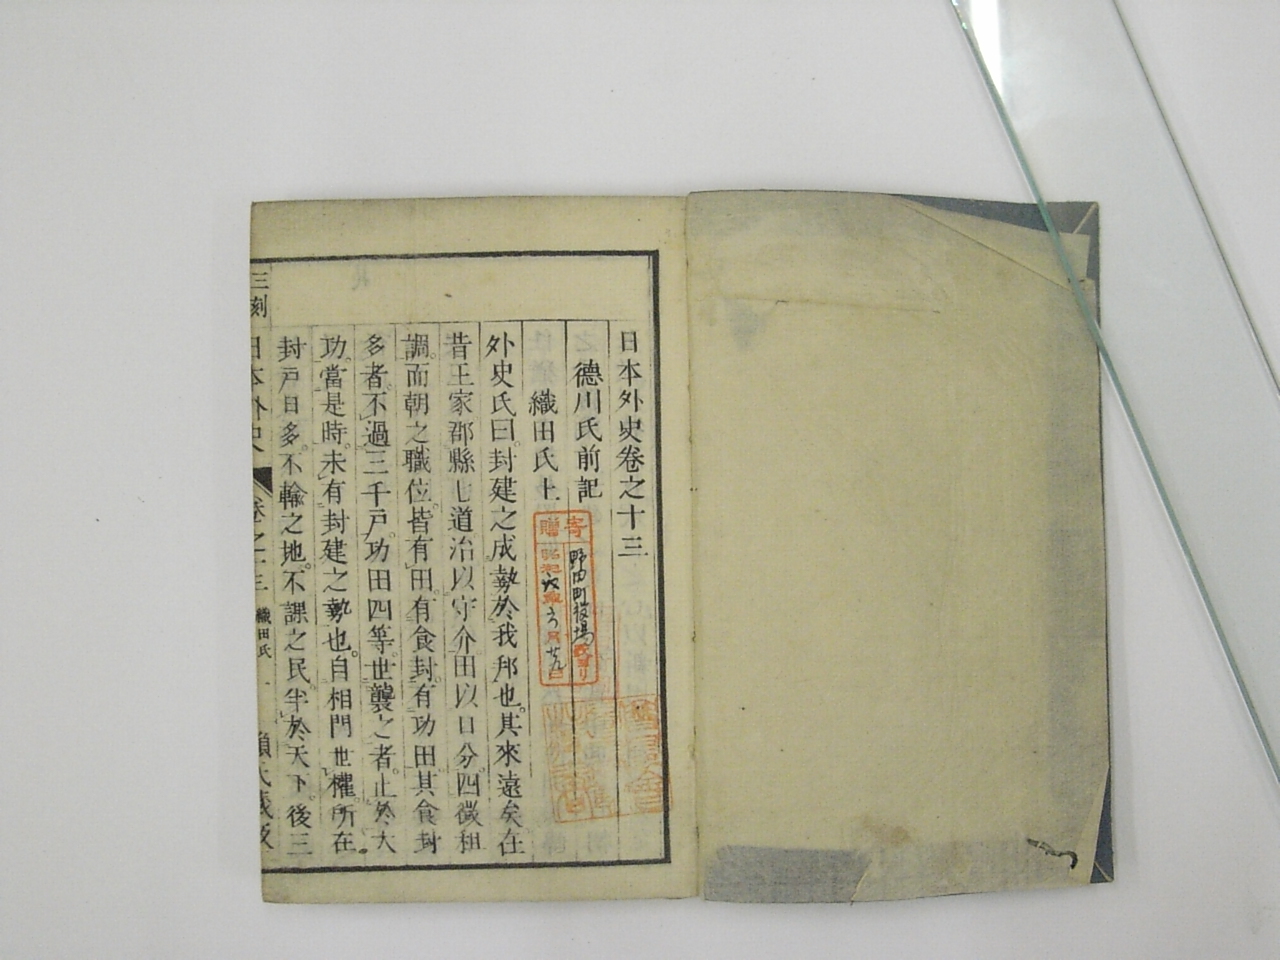 日本外史卷之十三
德川氏前記
織田氏上
外史氏曰。封建之成勢於我邦也。其來遠矣。在
昔王家郡縣七道。治以守介。田以口分。四徵租
調。而朝之職位。皆有田。有食封。有功田。其食封
多者。不過三千戸。功田四等。世襲之者。止於大
功。當是時。未有封建之勢也。自相門世權。所在
封戸日多。不輸之地。不課之民。半於天下。後三
三刻
日本外史
卷之十三
織田氏
一
賴氏藏版
寄贈
野田町役場